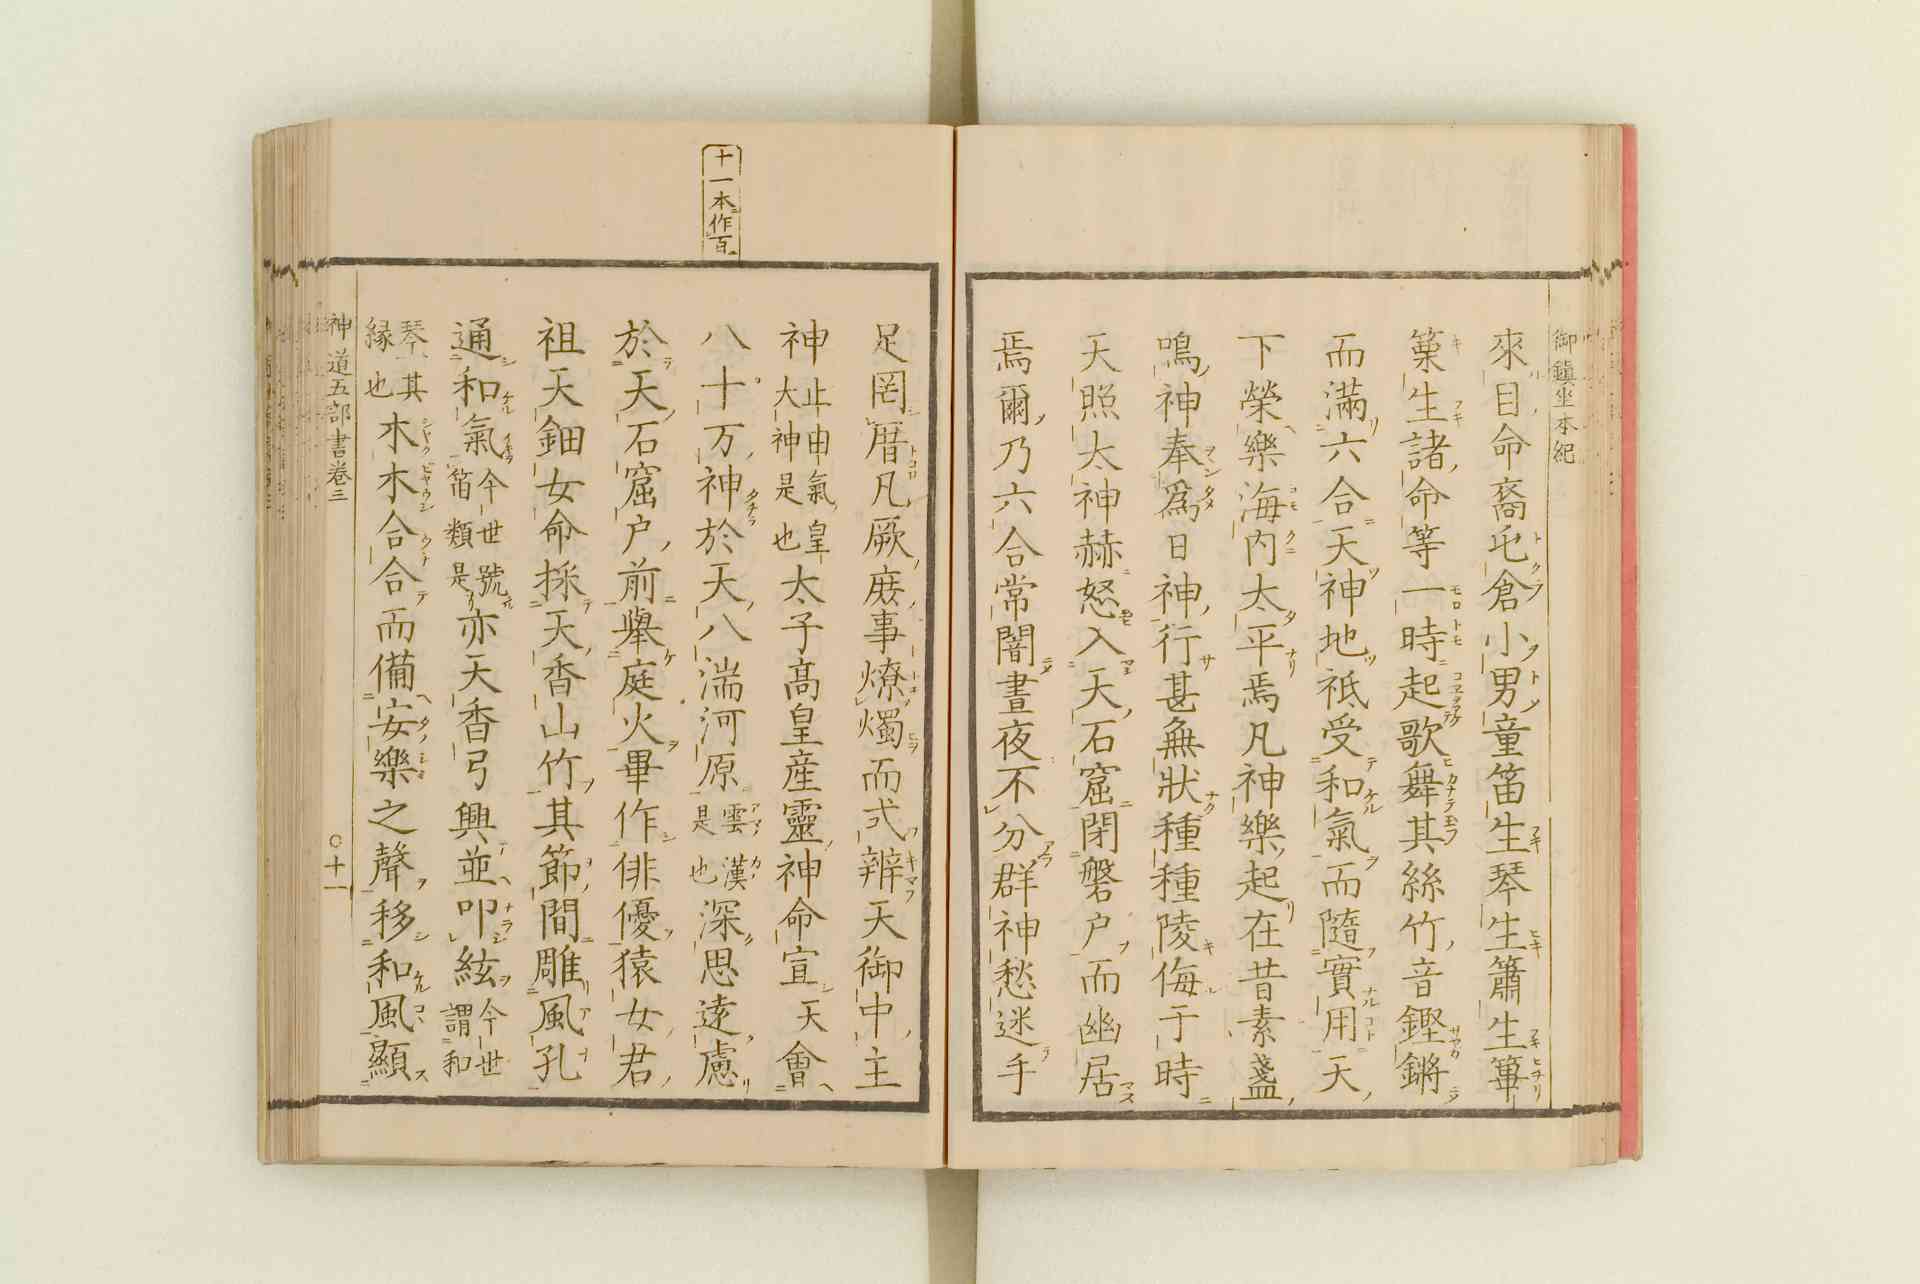 御鎮坐本紀
來目命裔屯倉小男童笛生琴生簫生篳
篥生諸命等一時起歌舞其絲竹音鏗鏘
而滿六合天神地祇受和氣而隨實用天
下榮樂海內太平焉凡神樂起在昔素盞
鳴神奉爲日神行甚無狀種種陵侮于時
天照太神赫怒入天石窟閉磐戶而幽居
焉爾乃六合常闇晝夜不分群神愁迷手
足罔厝凡厥庶事燎燭而弍辨天御中主
神止由氣皇大神是也太子高皇産靈神命宣天會
八十万神於天八湍河原雲漢是也深思遠慮
於天石窟户前舉庭火畢作俳優猿女君
祖天鈿女命採天香山竹其節間雕風孔
通和氣今世號笛類是亦天香弓興並叩絃今世謂和
琴其縁也木木合合而備安樂之聲移和風顯
十一本作百
神道五部書卷三
○十一